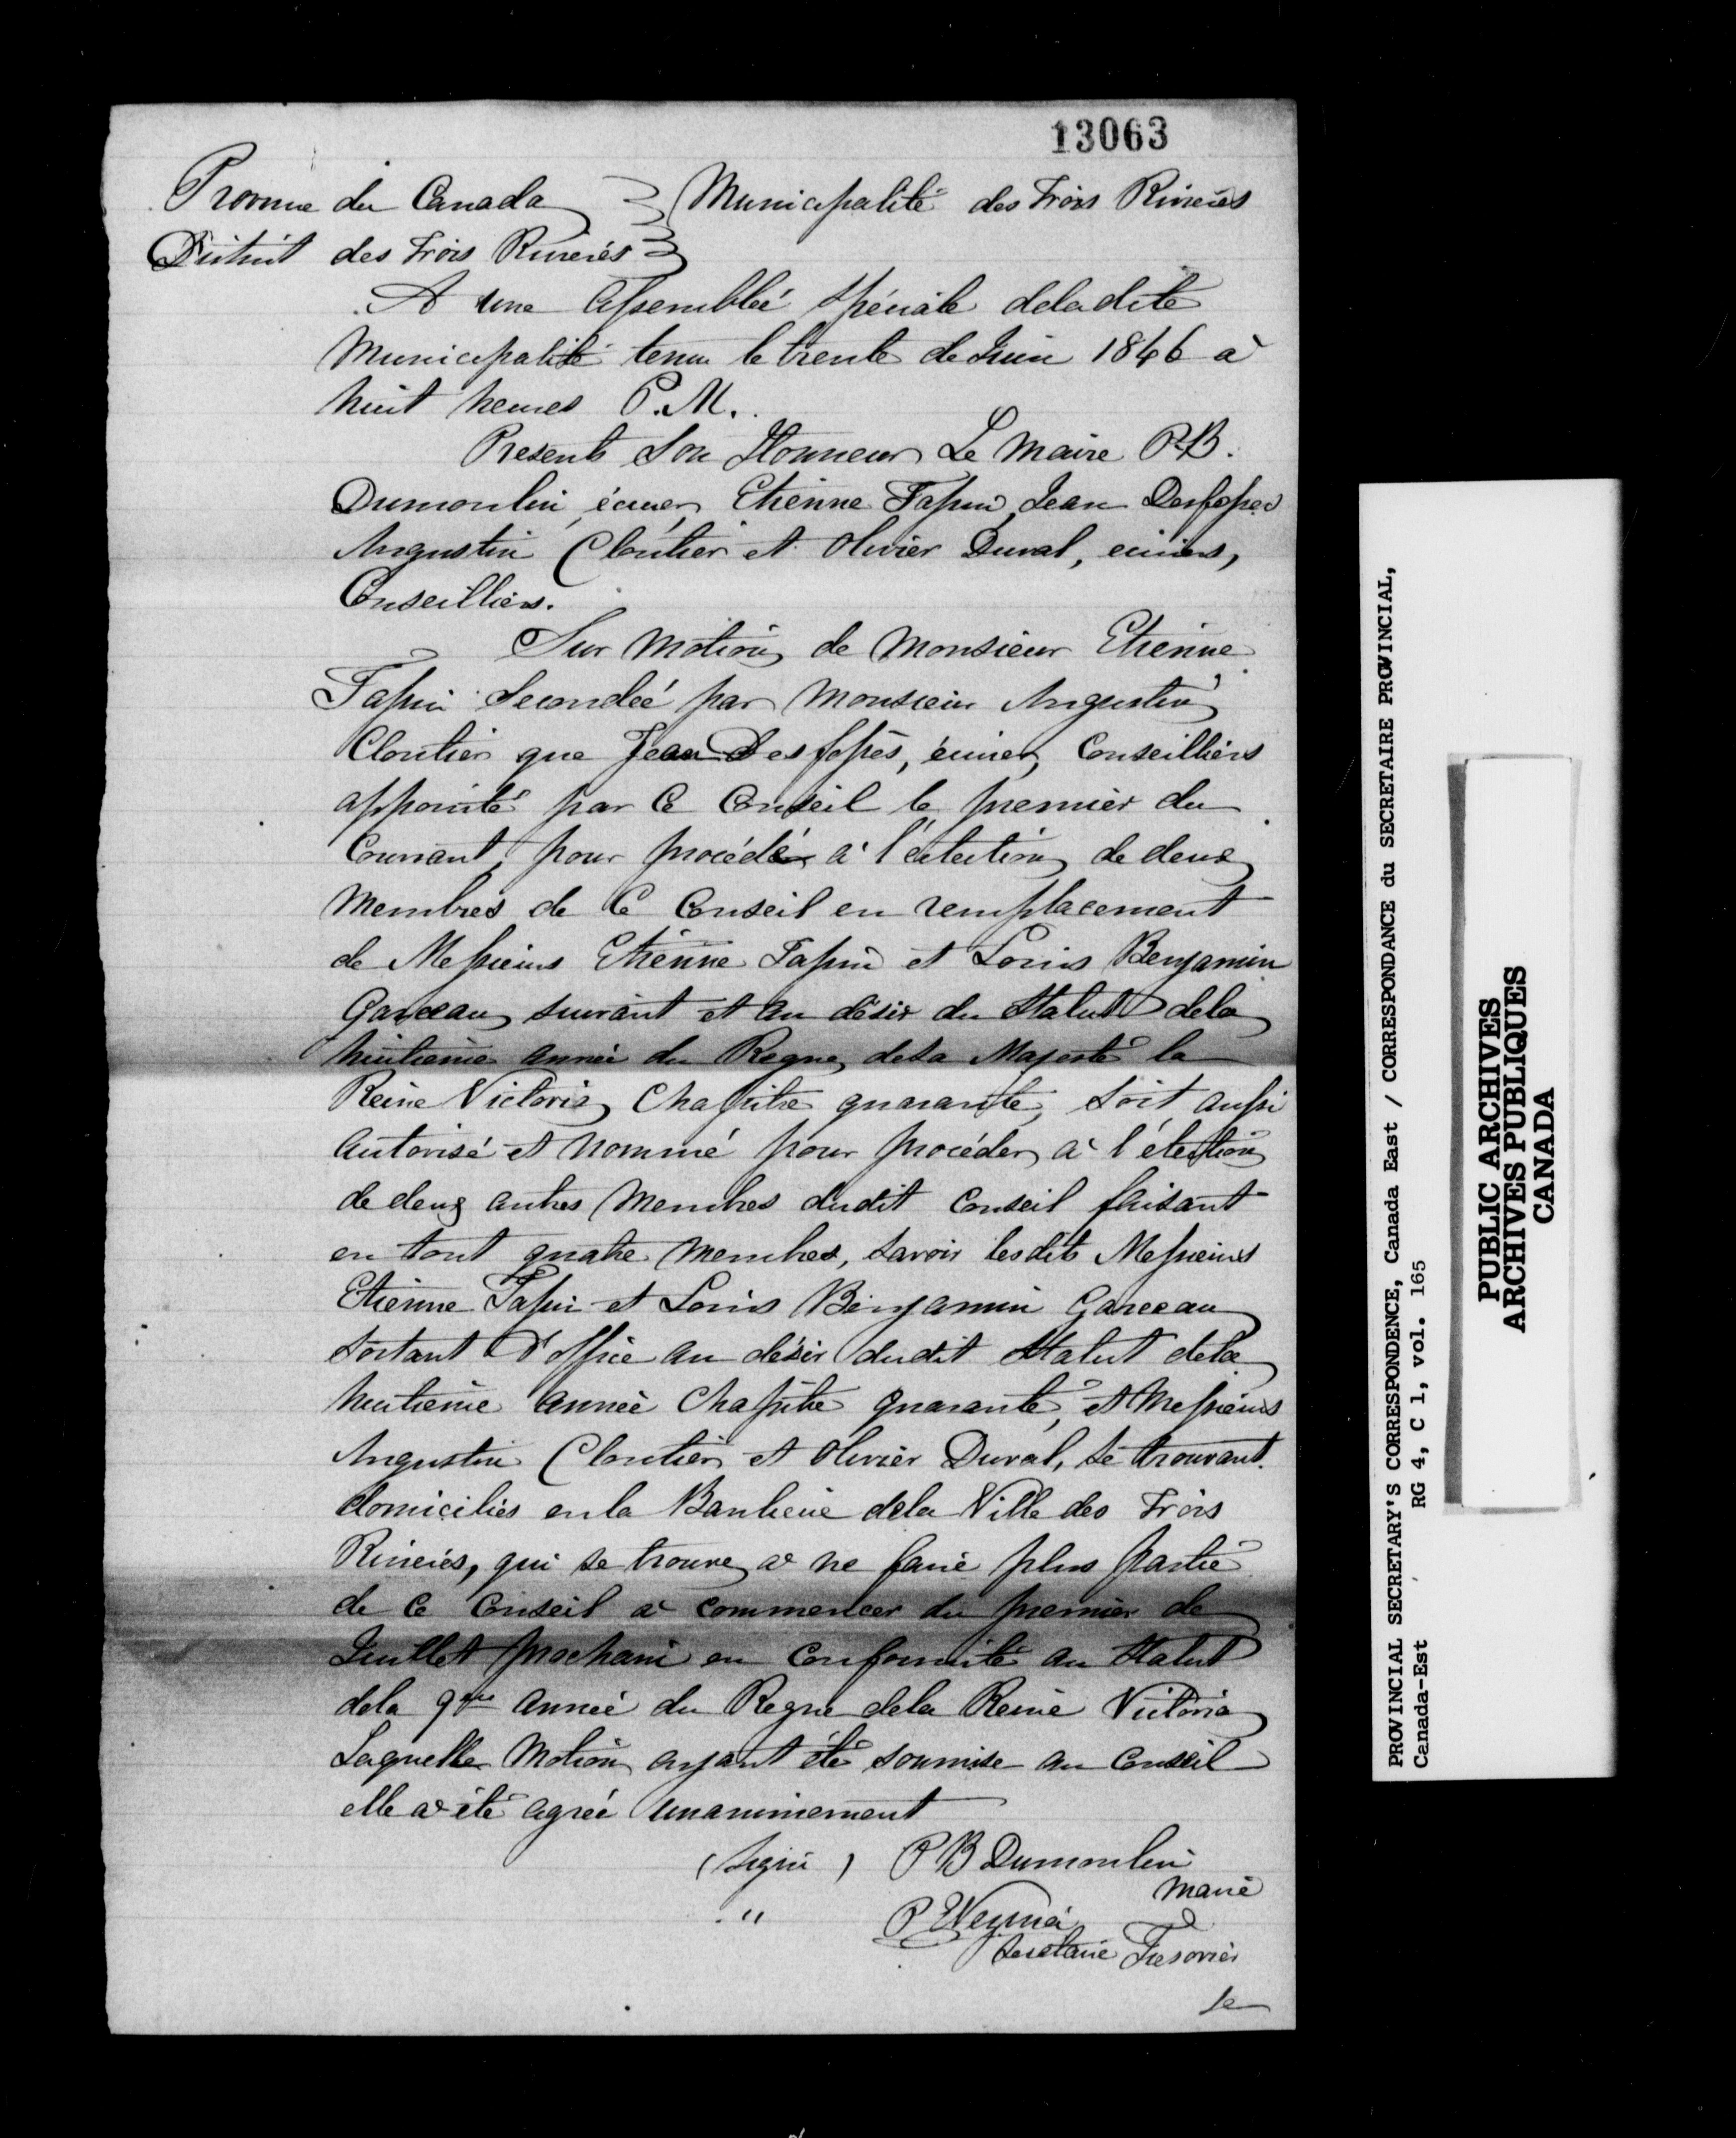 13063
Province du Canada } Municipalité des Trois Rivières
District des Trois Rivierés }
A une Assembleé spéciale dela dite
Municipalité tenue le trente de Juin 1846 à
huit heures P.M.
Presents Son Honneur Le Maire P.B.
Dumoulin, écuier, Etienne Tapin, Jean Desfossés
Augustin Cloutier et Olivier Duval, ecuiers,
Conseilliers.
Sur Motion de Monsieur Etienne
Tapin Secondeé par Monsieur Augustin
Cloutier que Jean Desfossés, écuier, Conseilliers
appointé par Ce Conseil le premier du
Courant, pour procédér à l'election de deux
Membres de Ce Conseil en remplacement
de Messieurs Etienne Tapin et Louis Benjamin
Garceau suivant et au désir du Statut dela
huitieme année du Regne de Sa Majesté la
Reine Victoria Chapitre quarante, soit aussi
Autorisé et nommé pour procéder à l'élection
de deux autres Membres dudit Conseil faisant
en tout quatre Membres, savoir lesdits Messieurs
Etienne Tapin et Louis Benjamin Garceau
sortant d'office au désir dudit Statut dela
huitieme Année Chapitre quarante, et Messieurs
Augustin Cloutier et Olivier Duval, se trouvant
domiciliés en la Banlieue dela Ville des Trois
Rivierés, qui se trouve à ne faire plus partie
de Ce Conseil à commencer du premier de
Juillet prochain en Conformité au Statut
dela 9me Année du Regne dela Reine Victoria
Laquelle Motion ayant été soumise au Conseil
elle a été agrée unanimement
(Signé) P B Dumoulin
Maire
" P
Secretaire Tresorier
PROVINCIAL SECRETARY'S CORRESPONDENCE, Canada East / CORRESPONDANCE du SECRETAIRE PROVINCIAL,
Canada-Est RG 4, C 1, vol. 165
PUBLIC ARCHIVES
ARCHIVES PUBLIQUES
CANADA